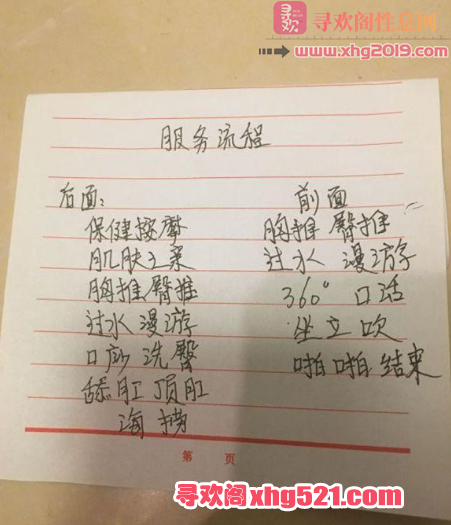 寻欢 寻欢阁性息网
www.xhg2019.com
服务流程
后面:
保健按摩
肌肤之亲
胸推臀推
过水漫游
口沙洗臀
舔肛顶肛
海捞
前面
胸推臀推
过水漫游
360°口活
坐立吹
啪啪结束
第 页
寻欢阁xhg521.com